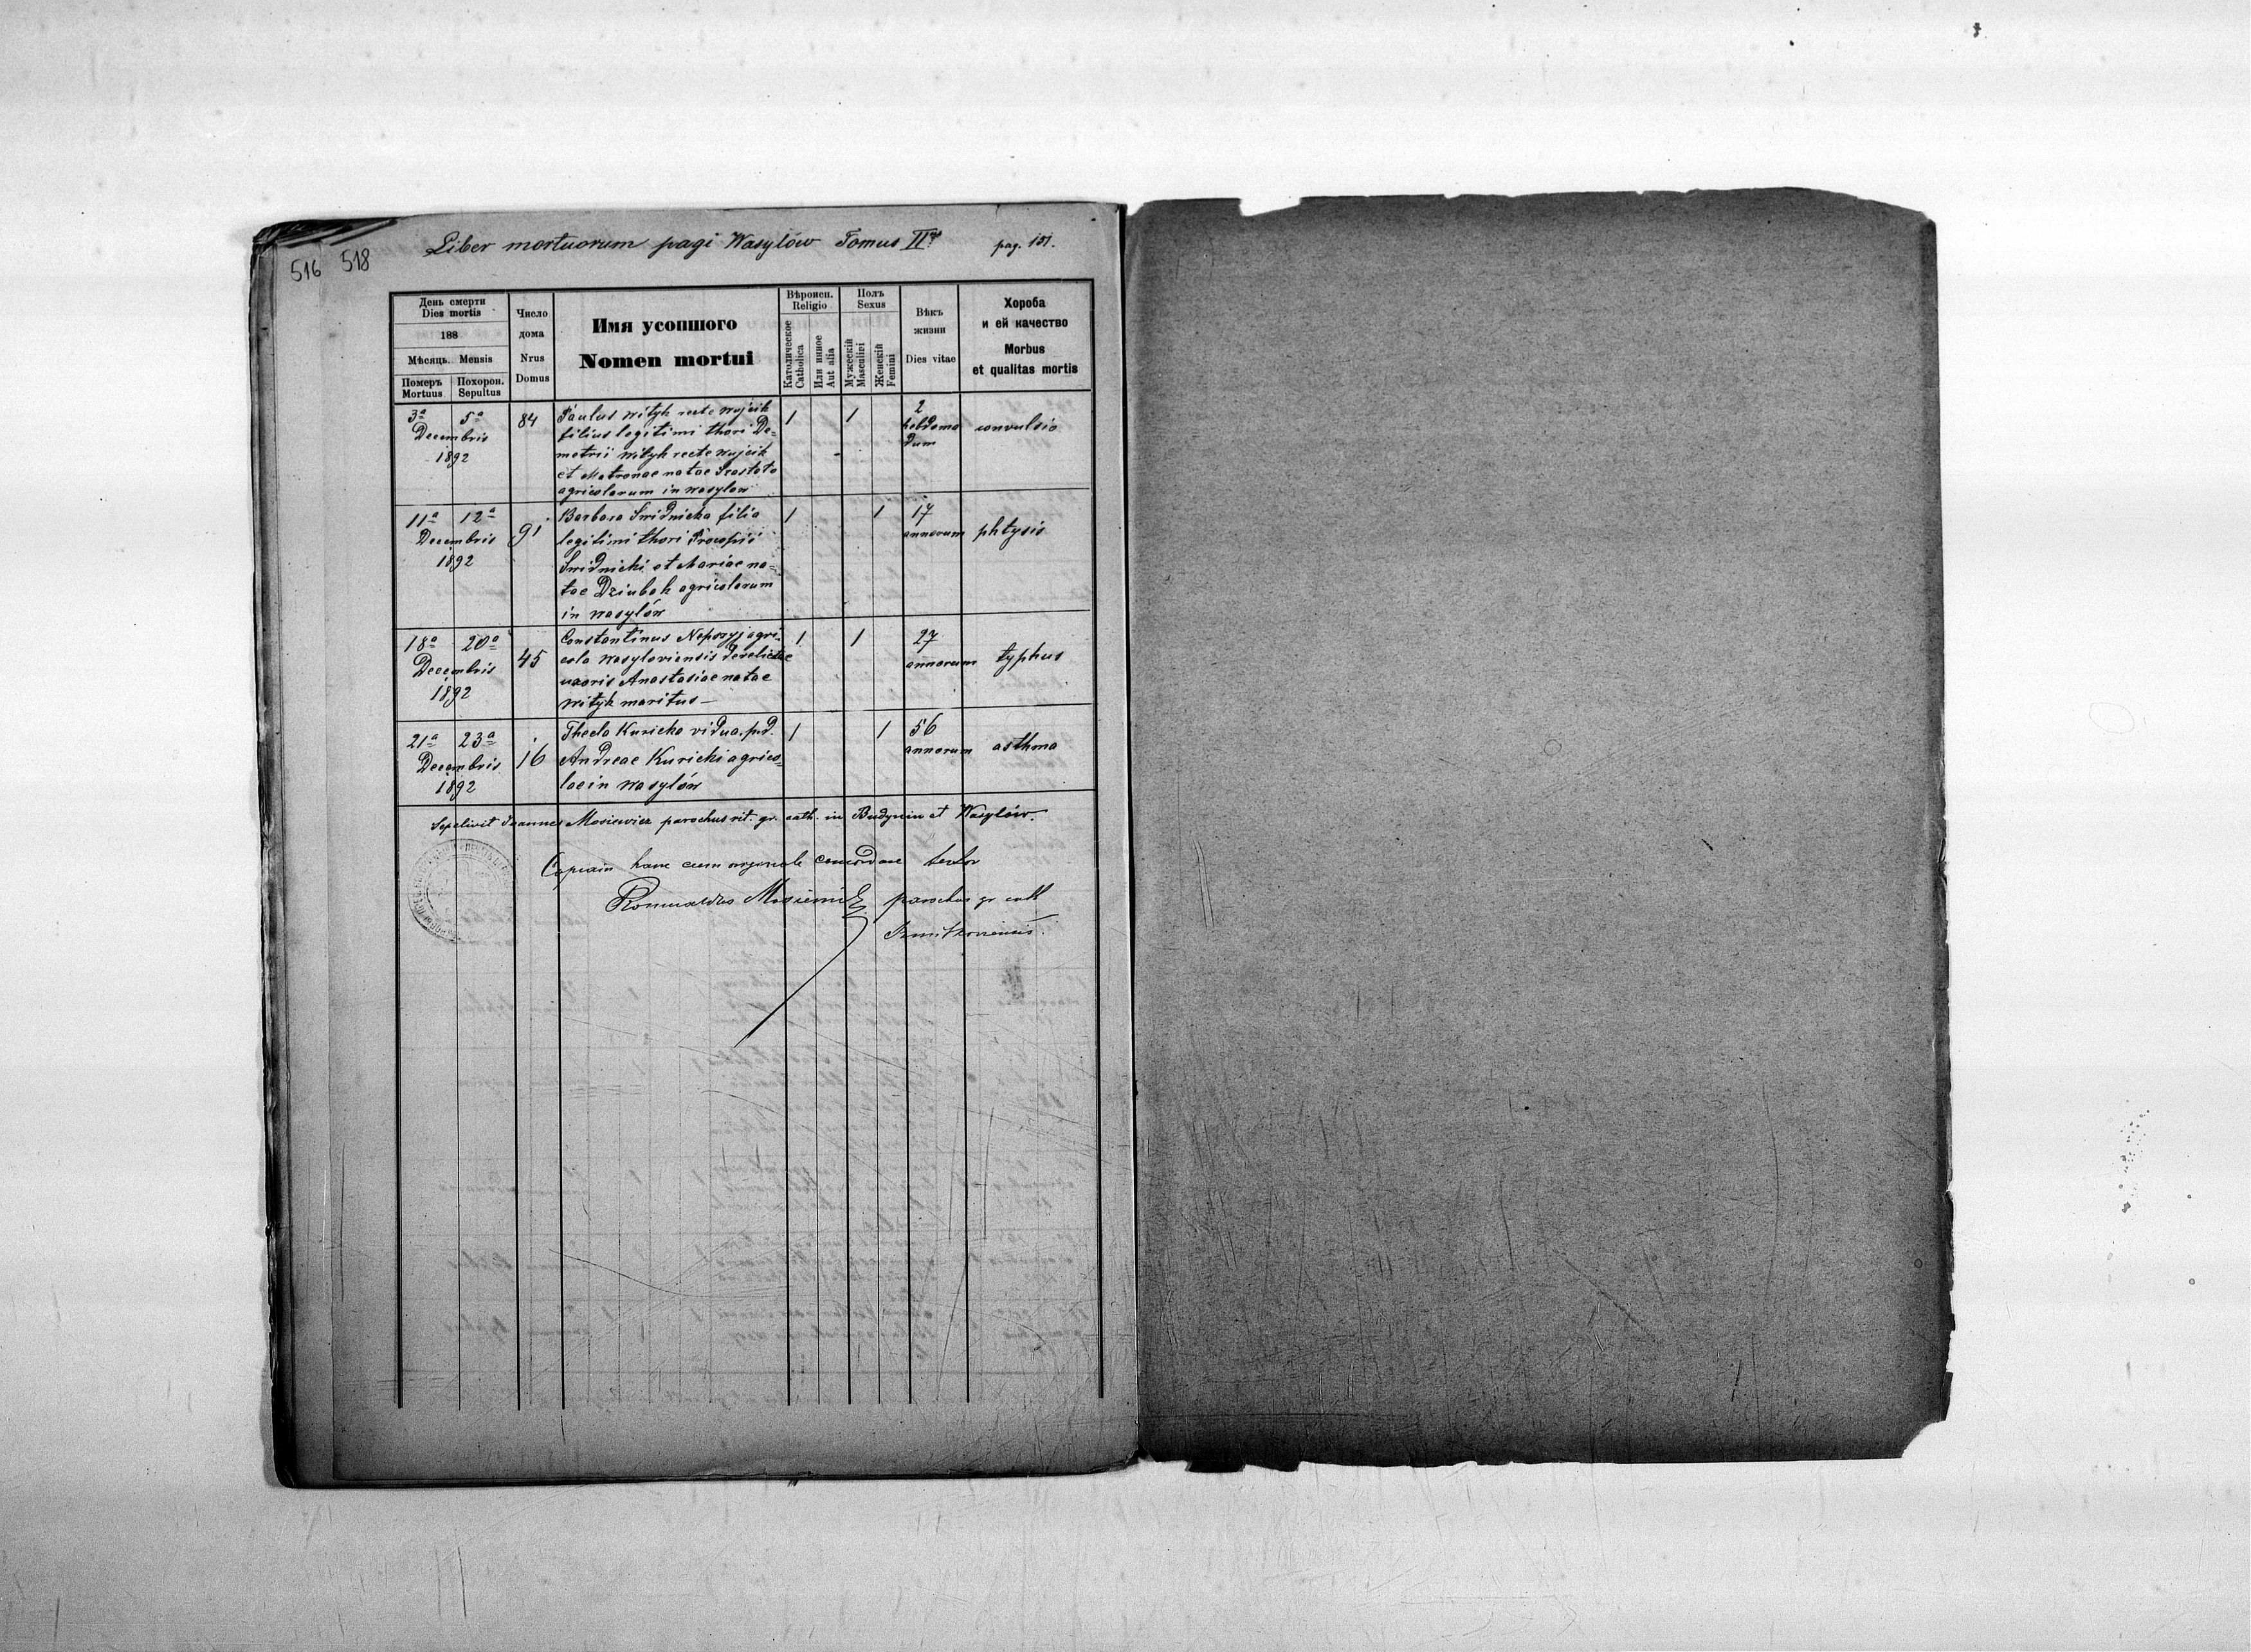 516 518
Liber mortuorum pagi Wasylów Tomus II us pag. 151.
День смерти
Dies mortis
188
Мѣсяць. Mensis
Померъ Похорон.
Mortuus Sepultus
Число
дома
Nrus
Domus
Имя усопшого
Nomen mortui
Вѣроисп.
Religio
Католическое
Catholica
Или инное
Aut alia
Полъ
Sexus
Мужескій
Masculini
Женскій
Femini
Вѣкъ
жизни
Dies vitae
Хороба
и ей качество
Morbus
et qualitas mortis
3a 5a
Decembris
1892
84
Paulus Wityk recte Wujcik
filius legitimi thori De=
metrii Wityk recte Wujcik
et Matronae natae
agricolarum in Wasylow
1 1
2
hebdoma
dum
convulsio
11a 12a
Decembris
1892
91
Barbara Swidnicka filia
legitimi thori Procopii
Swidnicki et Mariae na=
tae Dziubak agricolarum
in Wasylów
1 1
17
annorum
phtysis
18a 20a
Decembris
1892
45
Constantinus Neposyj agri=
cola Wasyloviensis derelictae
uxoris Anastasiae natae
Wityk maritus —
1 1
27
annorum
typhus
21a 23a
Decembris
1892
16
Thecla Kuricka vidua p.d.
Andreae Kuricki agrico=
lae in Wasylów
1 1
56
annorum
asthma
Sepelivit Joannes Mosiewicz parochus rit. gr. cath. in Budynin et Wasylów.
Copiam hanc cum originale concordare testor
Romualdus Mosiewicz parochus gr cath